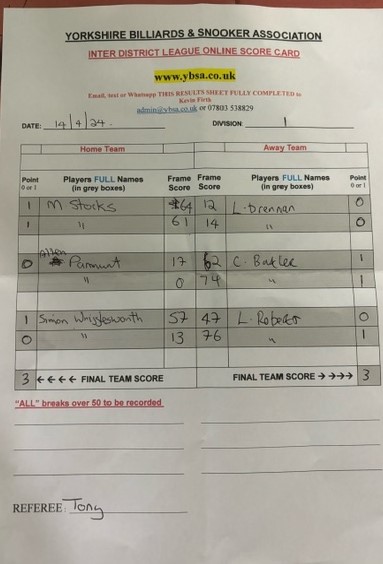 YORKSHIRE BILLIARDS & SNOOKER ASSOCIATION
INTER DISTRICT LEAGUE ONLINE SCORE CARD
www.ybsa.co.uk
Email, text or Whatsapp THIS RESULTS SHEET FULLY COMPLETED to
Kevin Firth
admin@ybsa.co.uk or 07803 538829
DATE: 14/4/24. DIVISION 1
Home Team Away Team
Point 0 or 1 Players FULL Names (in grey boxes) Frame Score Frame Score Players FULL Names (in grey boxes) Point 0 or 1
1 M Stocks 64 12 L. Drennan 0
1 " 61 14 " 0
0 Allen 17 62 C. 1
" 0 74 " 1
1 Simon Wrigglesworth 57 47 L. Roberts 0
0 " 13 76 " 1
3 ←←←← FINAL TEAM SCORE FINAL TEAM SCORE →→→→ 3
"ALL" breaks over 50 to be recorded
REFEREE: Tony